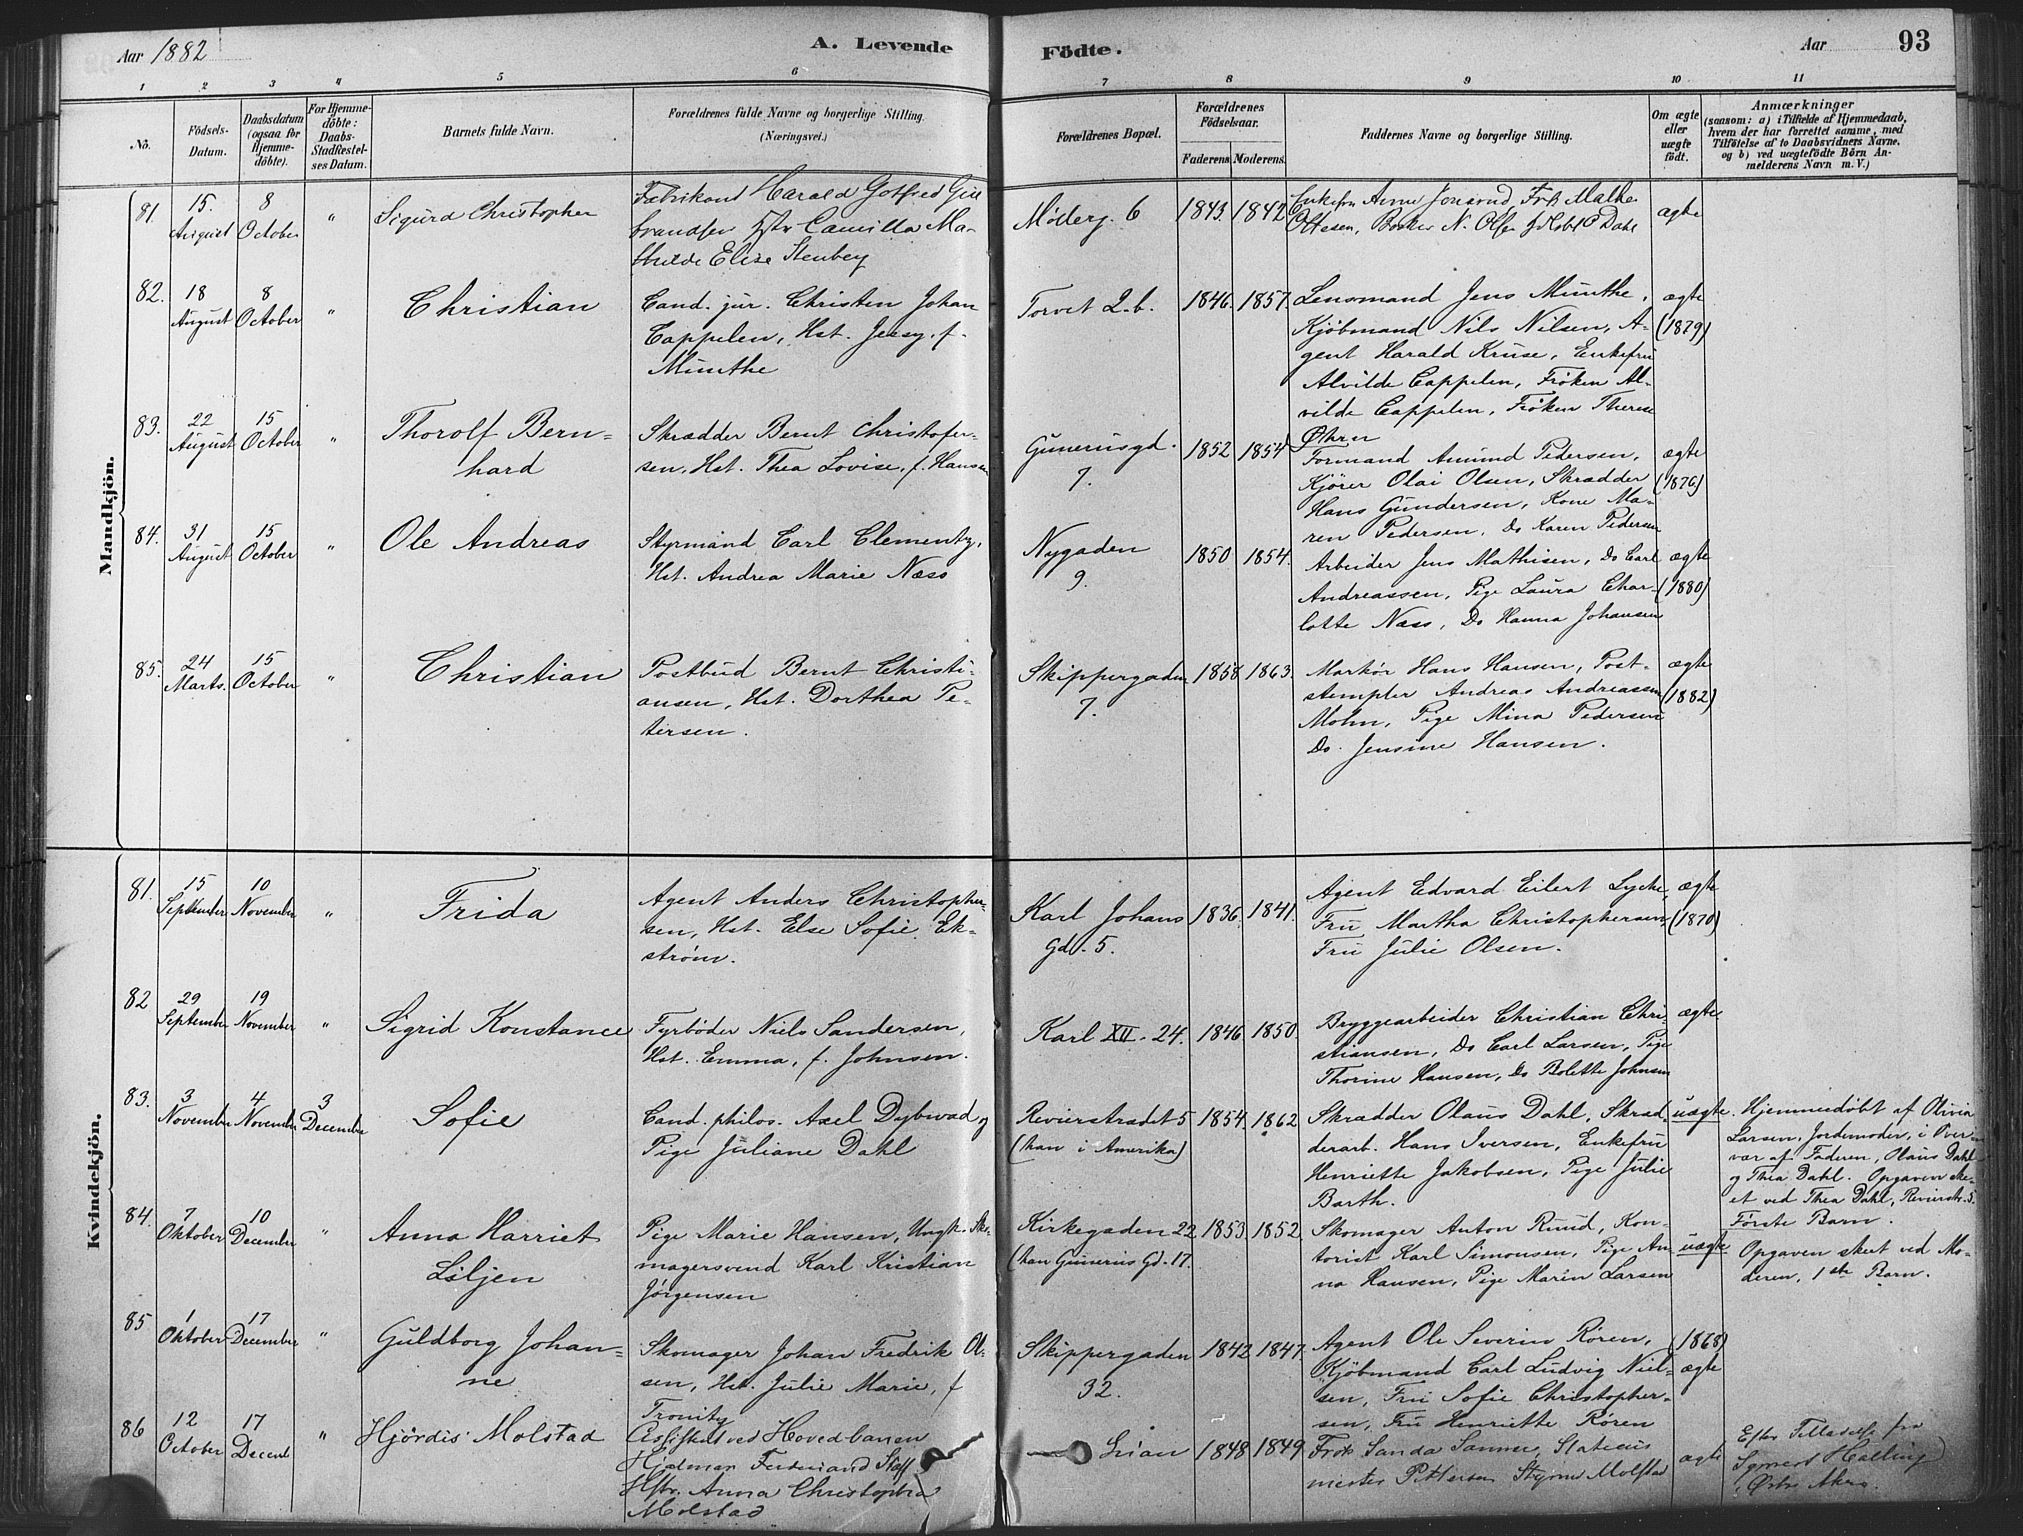 Aar 1882
A. Levende
Födte.
Aar
93
1 2 3 4 5 6 7 8 9 10 11
No.
Födsels-Datum.
Daabsdatum (ogsaa for Hjemme-döbte).
For Hjemme-döbte: Daabs-Stadfæstel-ses Datum.
Barnets fulde Navn.
Forældrenes fulde Navne og borgerlige Stilling. (Næringsvei.)
Forældrenes Bopæl.
Forældrenes Födselsaar.
Faderens. Moderens.
Faddernes Navne og borgerlige Stilling.
Om ægte eller uægte födt.
Anmærkninger
(saasom: a) i Tilfælde af Hjemmedaab,
hvem der har forrettet samme, med
Tilföielse af to Daabsvidners Navne.
og b) ved uægtefödte Börn An-
melderens Navn m. V.)
Mandkjön.
81. 15. August 8 October " Sigurd Christopher
Fabrikant Harald Gotfred Gul
brandsen Hstr Camilla Ma-
thilde Elise Stenberg
Møllerg. 6 1843. 1842
Enkefru Anne Frk Malhe
Ottesen, N. Olsen Dahl
ægte
82. 18 August 8 October " Christian
Cand. jur. Christen Johan
Cappelen, Hst. Jessy, f.
Munthe
Torvet 2.b. 1846. 1857.
Lensmand Jens Munthe,
Kjöbmand Nils Nilsen, A-
gent Harald Kruse, Enkefru
Alvilde Cappelen, Frøken Al-
vilde Cappelen, Frøken Therese
Øhren
ægte (1879)
83. 22 August 15 October " Thorolf Bern-
hard
Skrædder Bernt Christofer-
sen, Hst. Thea Lovise, f. Hansen
Gunerusgd. 7. 1852 1854
Formand Amund Pedersen,
Kjører Olai Olsen, Skrædder
Hans Gundersen, Kone Ma-
ren Pedersen, Do Karen Pedersen
ægte (1876)
84. 31 August 15 October " Ole Andreas
Styrmand Carl Clementz,
Hst. Andrea Marie Næss
Nygaden 9. 1850 1854.
Arbeider Jens Mathisen, Do Carl
Andreassen, Pige Laura Char-
lotte Næss, Do Hanna Johansen
ægte (1880)
85. 24 Marts. 15 October " Christian
Postbud Bernt Christi-
ansen, Hst. Dorthea Pe-
tersen.
Skippergaden 7. 1858 1863.
Markør Hans Hansen, Post-
stempler Andreas Andreassen
Mohn, Pige Mina Pedersen
Do. Jensine Hansen.
ægte (1882)
Kvindekjön.
81. 15 September 10 November " Frida
Agent Anders Christopher-
sen, Hst. Else Sofie Ek-
strøm.
Karl Johans Gd. 5. 1836. 1841.
Agent Edvard Eilert Lycke,
Fru Martha Christophersen,
Fru Julie Olsen.
ægte (1870)
82 29 September 19 November " Sigrid Konstance
Fyrbøder Niels Sandersen,
Hst. Emma, f. Johnsen.
Karl XII. 24. 1846 1850.
Bryggearbeider Christian Chri-
stiansen, Do Carl Larsen, Pige
Thorine Hansen, Do Bolette Johnsen
ægte
83. 3 November 4 November 3 December Sofie
Cand. philos. Axel Dybwad og
Pige Juliane Dahl
Revierstrædet 5 (han i Amerika) 1854. 1862
Skrædder Olaus Dahl, Skræd
derarb. Hans Iversen, Enkefru
Henriette Jakobsen, Pige Julie
Barth.
uægte.
Hjemmedøbt af Olivia
Larsen, Jordemoder, i Over-
vær af Faderen, Olaus Dahl
og Thea Dahl. Opgaven ske-
et ved Thea Dahl, Revierstr. 5.
Første Barn.
84. 7 Oktober 10 December " Anna Harriet
Liljen
Pige Marie Hansen, Ungk. Sko-
magersvend Karl Kristian
Jörgensen
Kirkegaden 22 (han Gunerius Gd. 17. 1853 1852
Skomager Anton Ruud, Kon-
torist Karl Simonsen, Pige An-
na Hansen, Pige Maren Larsen
uægte
Opgaven skeet ved Mo-
deren, 1ste Barn.
85 1 Oktober 17 December " Guldborg Johan-
ne
Skomager Johan Fredrik Ol-
sen, Hst. Julie Marie, f
Tronity
Skippergaden 32. 1842 1847.
Agent Ole Severin Rören,
Kjöbmand Carl Ludvig Niel-
sen, Fru Sofie Christopher-
sen, Fru Henriette Rören
(1868) ægte
86 12 October 17 Decemb " Hjördis Molstad
Assistent ved Hovedbanen
Hjalmar Ferdinand Staff
Hstr. Anna Christophra
Molstad
Grian 1848 1849
Frk Sanda Sanner, Stations
mester Pettersen Styrm Molstad
ægte
Efter Tilladelse fra
Halling
Akers.